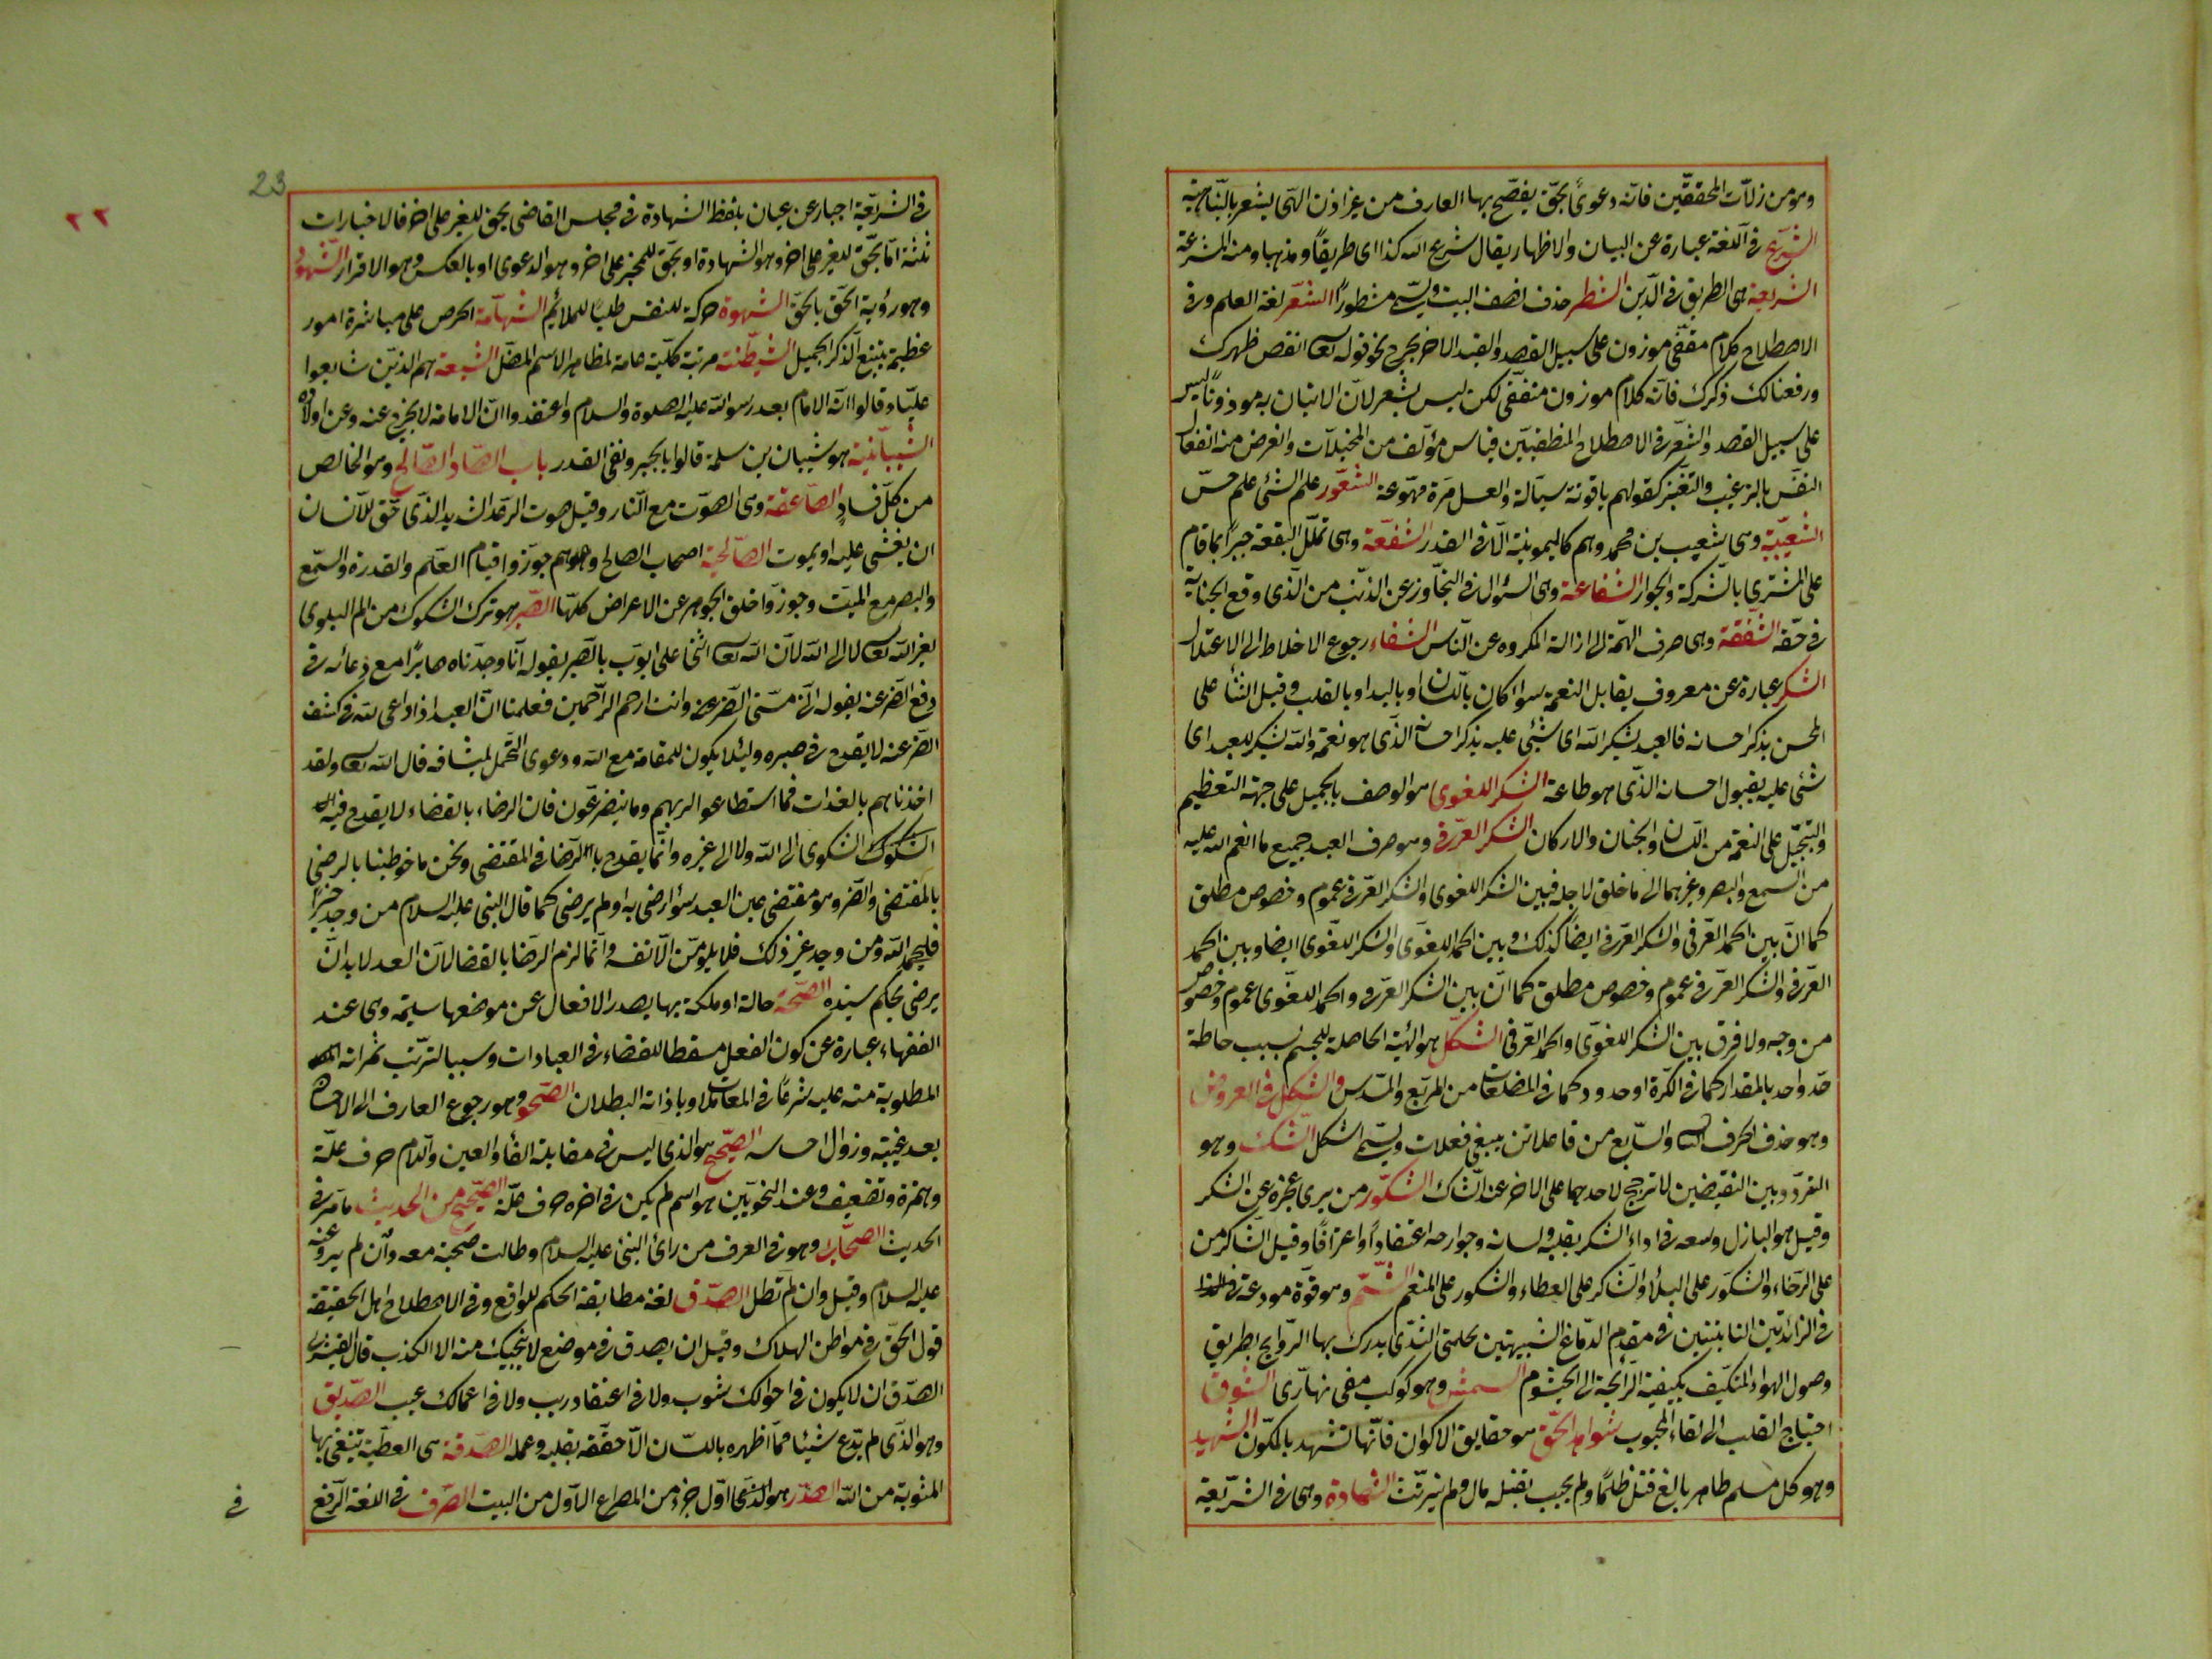 وهو من زلات المحققين فانه دعوى بحق يفصح بها العارف من غير اذن الهى يشعر بالنباهية
الشرع فى اللغة عبارة عن البيان والاظهار يقال شرع الله كذا اى طريقا ومذهبا ومنه المشرعة
الشريعة هى الطريق فى الدين الشطر حذف نصف البيت ويسمى مشطورا الشعر لغة العلم وفى
الاصطلاح كلام مقفى موزون على سبيل القصد والقيد الاخر يخرج نحو قوله تعا انقض ظهرك
ورفعنا لك ذكرك فانه كلام موزون مقفى لكن ليس بشعر لان الاتيان به موزونا ليس
على سبيل القصد والشعر فى الاصطلاح المنطقيين قياس مؤلف من المخيلات والغرض منه انفعال
النفس بالترغيب والتنفير كقولهم ياقوتة سيالة والعسل مرة مهوعة الشعور علم الشئ علم حس
الشعيبية وهى شعيب بن محمد وهم كالميمونية الا فى القدر الشفعة وهى تملك البقعة جبرا بما قام
على المشترى بالشركة والجوار الشفاعة وهى السؤال فى التجاوز عن الذنب من الذى وقع الجناية
فى حقه الشفقة وهى صرف الهمة الى ازالة المكروه عن الناس الشفاء رجوع الاخلاط الى الاعتدال
الشكر عبارة عن معروف يقابل النعمة سوا كان باللسان او باليد او بالقلب وقيل الثنأ على
المحسن بذكر احسانه فالعبد يشكر الله اى يثنى عليه بذكر احسانه الذى هو نعمة والله يشكر للعبد اى
يثنى عليه بقبول احسانه الذى هو طاعة الشكر اللغوى هو الوصف بالجميل على جهة التعظيم
والتبجيل على النعمة من اللسان والجنان والاركان الشكر العرفى وهو صرف العبد جميع ما انعم الله عليه
من السمع والبصر وغيرهما الى ما خلق لاجله فبين الشكر اللغوى والشكر العرفى عموم وخصوص مطلق
كما ان بين الحمد العرفى والشكر العرفى ايضا كذلك وبين الحمد اللغوى والشكر اللغوى ايضا وبين الحمد
العرفى والشكر العرفى عموم وخصوص مطلق كما ان بين الشكر العرفى والحمد اللغوى عموم وخصوص
من وجه ولا فرق بين الشكر اللغوى والحمد العرفى الشكل هو الهيئة الحاصلة للجسم بسبب احاطة
حد واحد بالمقدار كما فى الكرة او حدود كما فى المضلعات من المربع والمسدس والشكل فى العروض
وهو حذف الحرف والسابع من فاعلاتن يبقى فعلات ويسمى اشكل الشك وهو
التردد بين النقيضين لا ترجيح لاحدهما على الاخر عند الشاك الشكور من يرى عجزه عن الشكر
وقيل هو الباذل وسعه فى اداء الشكر بقلبه ولسانه وجوارحه اعتقادا واعترافا وقيل الشاكر من
على الرخاء والشكور على البلأ والشاكر على العطاء والشكور على المنعم الشم وهو قوة مودعة
فى الزائدتين النابتتين فى مقدم الدماغ الشبيهتين بحلمتى الثدى يدرك بها الروايح بطريق
وصول الهواء المتكيف بكيفية الرائحة الى الخيشوم الشمس وهو كوكب مضى نهارى الشوق
احتياج القلب الى لقاء المحبوب شواهد الحق هو حقايق الاكوان فانها تشهد بالمكون الشهيد
وهو كل مسلم طاهر بالغ قتل ظلما ولم يجب بقتله مال ولم يرتث الشهادة وهى فى الشريعة
23
٢٢
فى الشريعة اخبار عن عيان بلفظ الشهادة فى مجلس القاضى بحق للغير على اخر فالاخبارات
ثلثة اما بحق للغير على اخر وهو الشهادة او بحق للمخبر على اخر وهو الدعوى او بالعكس وهو الاقرار الشهود
وهو رؤية الحق بالحق الشهوة حركة للنفس طلبا للملائم الشهامة الحرص على مباشرة امور
عظيمة يتبع الذكر الجميل الشيطنة مرتبة كلية عامة لمظاهر الاسم المضل الشيعة هم الذين شايعوا
عليا وقالوا انه الامام بعد رسو الله عليه الصلوة والسلام واعتقدوا ان الامامة لا يخرج عنه وعن اولاده
الشيبانية هو شيبان بن سلمة قالوا بالجبر ونفى القدر باب الصاد الصالح وهو الخالص
من كل فساد الصاعقة وهى الصوت مع النار وقيل صوت الرعد الشديد الذى حق للانسان
ان يغشى عليه او يموت الصالحية اصحاب الصالح وهم جوزوا قيام العلم والقدرة والسمع
والبصر مع الميت وجوزوا خلق الجوهر عن الاعراض كلها الصبر هو ترك الشكوك من الم البلوى
لغير الله تعا لا الى الله لان الله تعا اثنى على ايوب بالصبر بقوله انا وجدناه صابرا مع دعائه فى
دفع الضر عنه بقوله انى مسنى الضر وانت ارحم الراحمين فعلمنا ان العبد اذا دعى الله فى كشف
الضر عنه لا يقدح فى صبره ولئلا يكون للمقامة مع الله ودعوى التحمل لمشاقه قال الله تعا ولقد
اخذناهم بالعذاب فما استطاعوا لربهم وما يتضرعون فان الرضاء بالقضاء لا يقدح فيه
الشكوك الشكوى الى الله ولا الى غيره وانما يقدح بالرضا فى المقتضى ونحن ما خوطبنا بالرضى
بالمقتضى والضر وهو مقتضى عين العبد سوأ رضى به او لم يرضى كما قال النبى عليه السلام من وجد خيرا
فليحمد الله ومن وجد غير ذلك فلا يلومن الا نفسه وانما لزم الرضا بالقضا لان العبد لا بد ان
يرضى بحكم سيده الصحة حالة او ملكة بها يصدر الافعال عن موضعها سليمة وهى عند
الفقهاء عبارة عن كون الفعل مسقطا للقضاء فى العبادات وسببا لترتب ثمراته
المطلوبة منه عليه شرعا فى المعاملات وباذاته البطلان الصحو وهو رجوع العارف الى الاحساس
بعد غيبته وزوال احساسه الصحيح هو الذى ليس فى مقابلة الفأ والعين واللام حرف علة
وهمزة وتضعيف وعند النحويين هو اسم لم يكن فى اخره حرف علة الصحيح من الحديث ما مر فى
الحديث الصحابى وهو فى العرف من رأى النبى عليه السلام وطالت صحبته معه وان لم يرو عنه
عليه السلام وقيل وان لم تطل الصدق لغة مطابقة الحكم للواقع وفى الاصطلاح اهل الحقيقة
قول الحق فى مواطن الهلاك وقيل ان يصدق فى موضع لا ينجيك منه الا الكذب قال القشيرى
الصدق ان لا يكون فى احوالك شوب ولا فى اعتقاد ريب ولا فى اعمالك عيب الصديق
وهو الذى لم يدع شيئا مما اظهره باللسان الا حققه بقلبه وعمله الصدقة هى العطية تبتغى بها
المثوبة من الله الصدر هو الذى اول جزء من المصراع الاول من البيت الصرف فى اللغة الرفع
فى